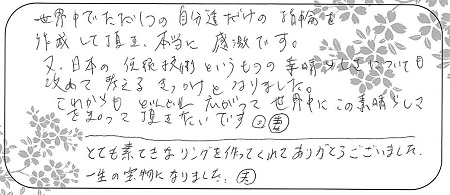 世界中でただ1つの自分達だけの指輪を
作成して頂き、本当に感激です。
又、日本の伝統技術というものの素晴らしさについても
改めて考えるきっかけとなりました。
これからもどんどん広がって世界中にこの素晴らしさ
を
って頂きたいです
妻
とても素てきなリングを作ってくれてありがとうございました。
一生の宝物になりました。夫